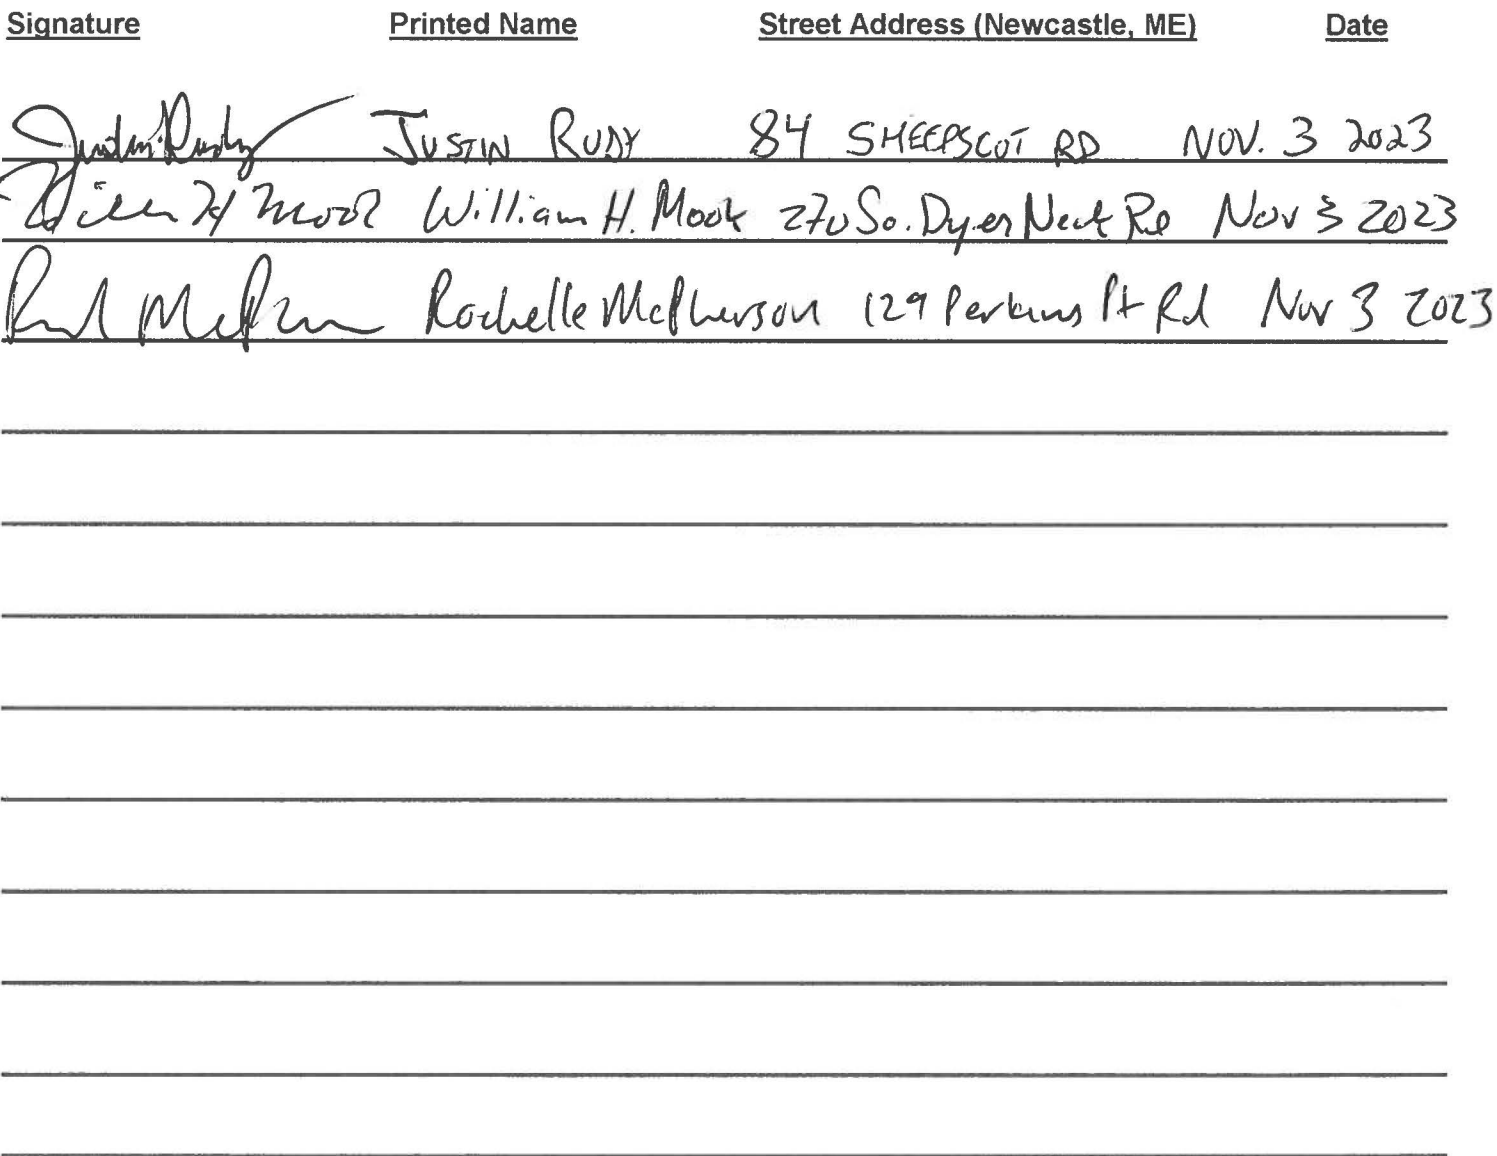 Signature Printed Name Street Address (Newcastle, ME) Date
Justin Rudy JUSTIN RUDY 84 SHEEPSCOT RD NOV. 3 2023
William H Mook William H. Mook 270 So. Dyer Neck Rd Nov 3 2023
Rochelle McPherson 129 Perkins Pt Rd Nov 3 2023